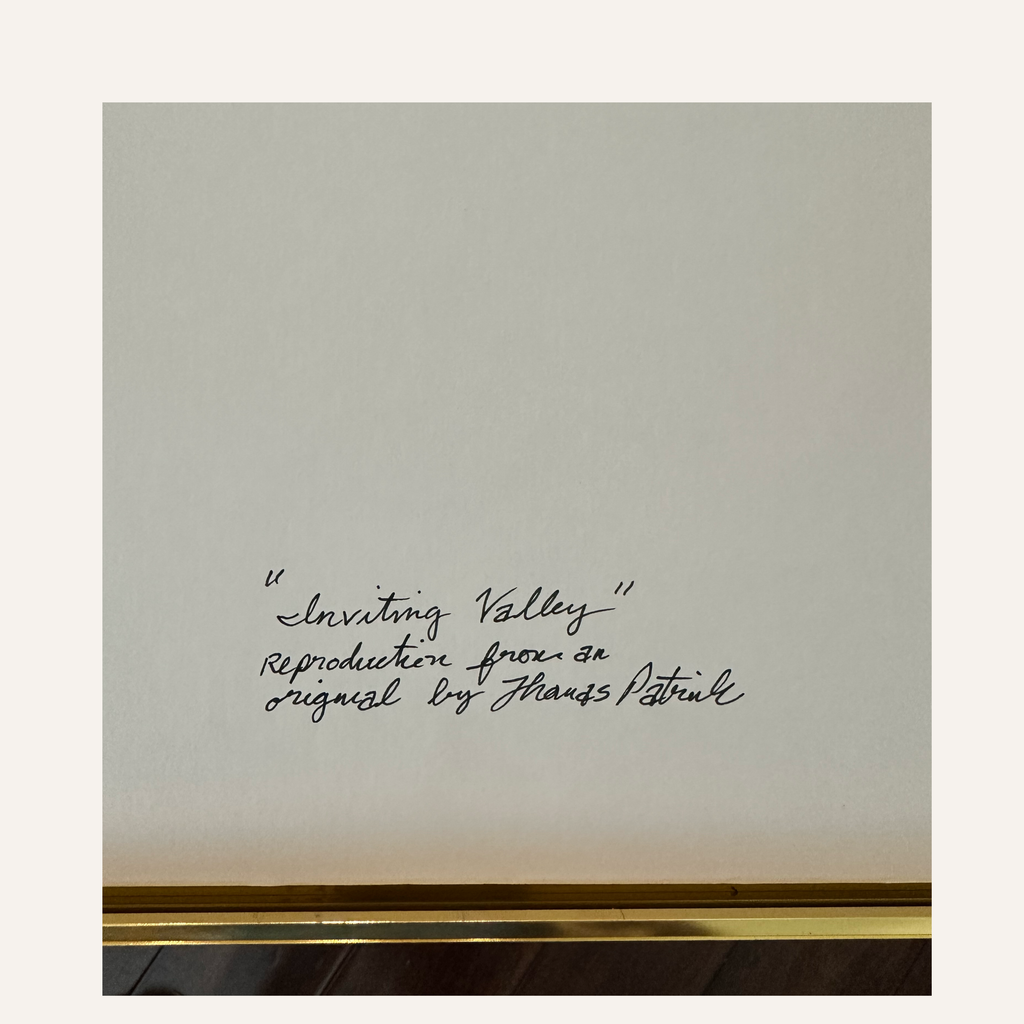 "Inviting Valley"
Reproduction from an
original by Thomas Patrick